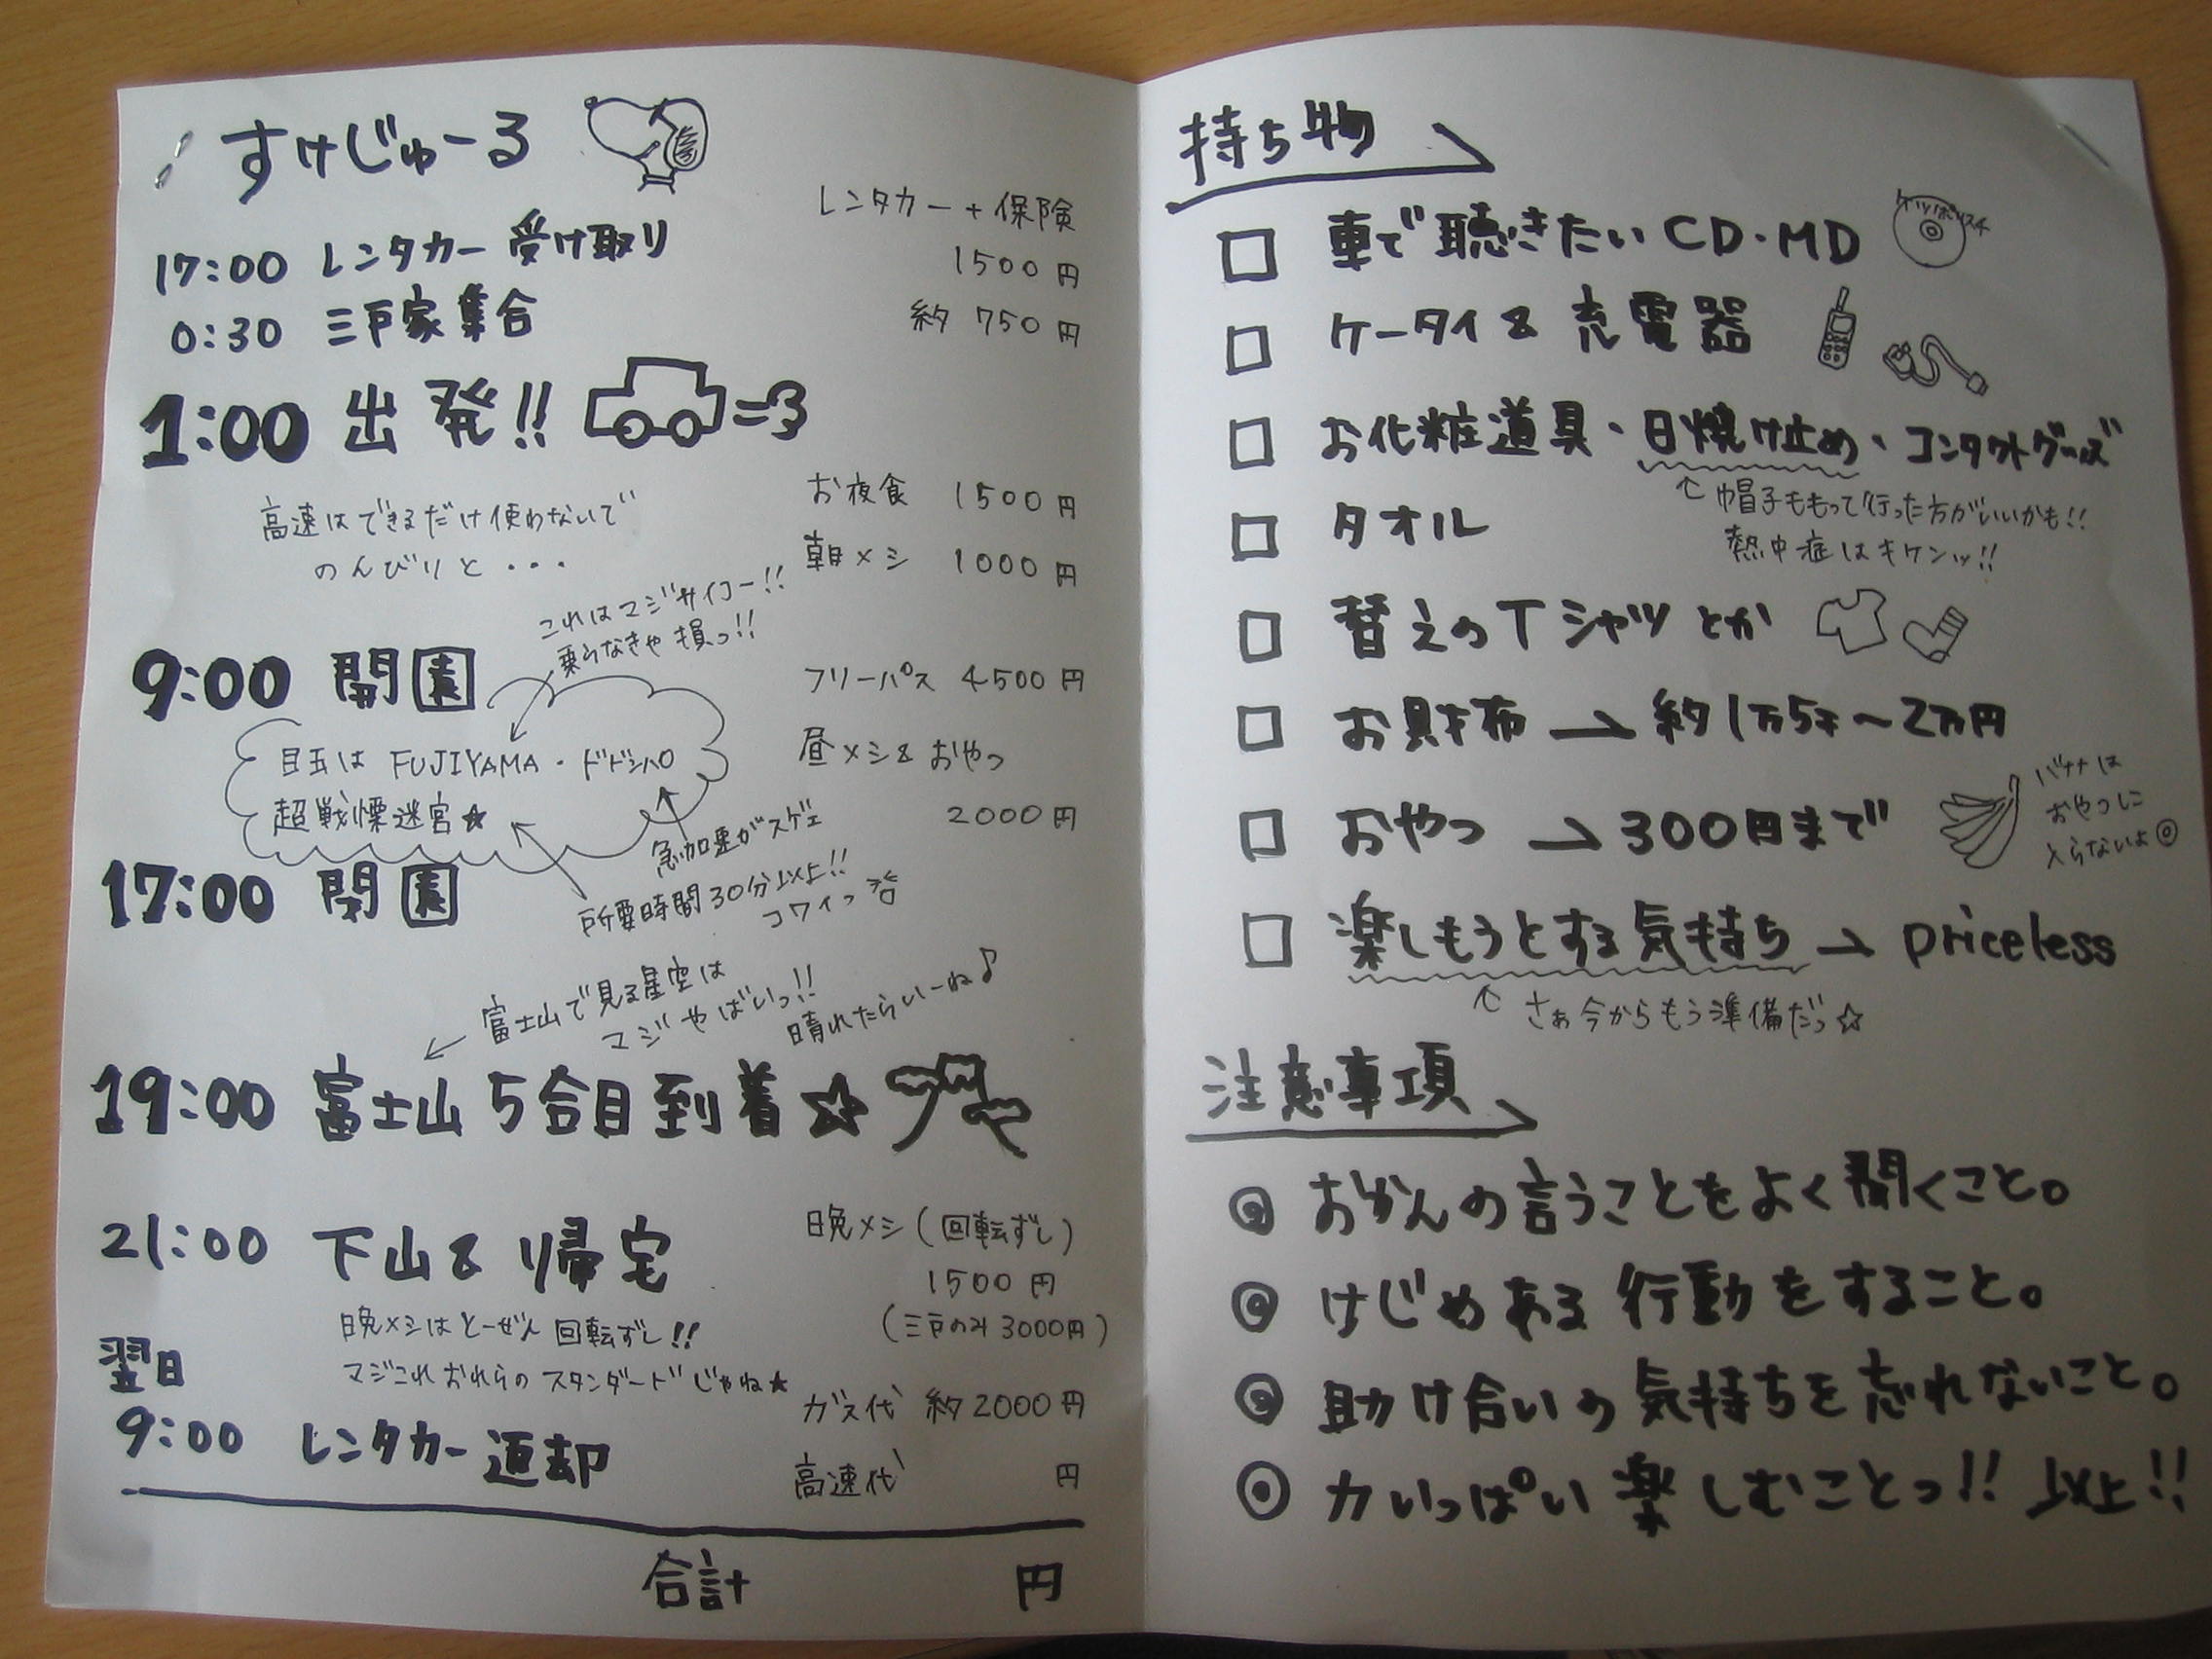 すけじゅーる
17:00 レンタカー受け取り
レンタカー+保険
1500円
0:30 三戸家集合
約750円
1:00 出発!!
高速はできるだけ使わないで
のんびりと・・・
お夜食 1500円
朝メシ 1000円
これはマジサイコー!!
乗らなきゃ損っ!!
9:00 開園
フリーパス 4500円
目玉は FUJIYAMA・ドドンパ
超戦慄迷宮☆
昼メシ&おやつ
2000円
急加速がスゲェ
所要時間30分以上!!
コワイっ
17:00 閉園
富士山で見る星空は
マジやばいっ!!
晴れたらいーね♪
19:00 富士山5合目到着☆
21:00 下山&帰宅
晩メシ(回転ずし)
1500円
(三戸のみ3000円)
晩メシはとーぜん回転ずし!!
マジこれおれらのスタンダードじゃね★
翌日
9:00 レンタカー返却
ガス代 約2000円
高速代 円
合計 円
持ち物
□ 車で聴きたいCD・MD
□ ケータイ&充電器
□ お化粧道具・日焼け止め・コンタクトグッズ
帽子ももって行った方がいいかも!!
熱中症はキケンッ!!
□ タオル
□ 替えのTシャツとか
□ お財布→約1万5千~2万円
□ おやつ→300円まで
バナナは
おやつに
入らないよ◎
□ 楽しもうとする気持ち→priceless
さぁ今からもう準備だっ☆
注意事項
◎ おかんの言うことをよく聞くこと。
◎ けじめある行動をすること。
◎ 助け合いの気持ちを忘れないこと。
◎ 力いっぱい楽しむことっ!! 以上!!